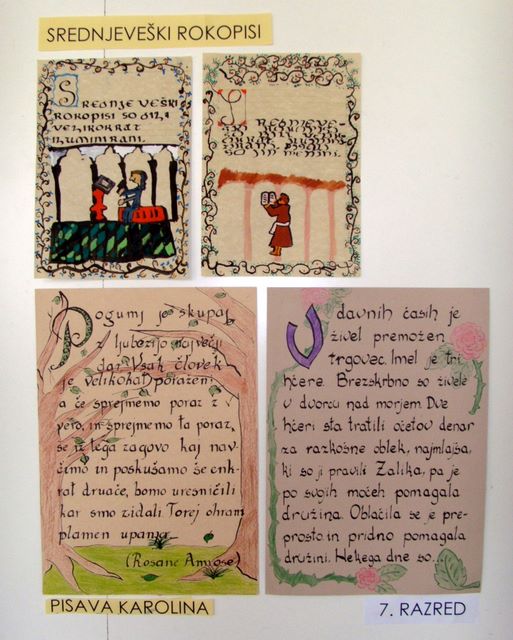 SREDNJEVEŠKI ROKOPISI
SREDNJEVEŠKI
ROKOPISI SO BILI
VELIKOKRAT
ILUMINIRANI.
SO JIH MENIHI.
Pogum je skupaj
z ljubeznijo največji
dar. Vsak človek
je velikokrat poražen,
a če sprejmemo poraz z
vero, in sprejmemo ta poraz,
se iz tega zagovo kaj nav-
čimo in poskušamo še enk-
rat drugače, bomo uresničili
kar smo zidali. Torej ohrani
plamen upanja.
(Rosane Amrose)
V davnih časih je
živel premožen
trgovec. Imel je tri
hčere. Brezskrbno so živele
v dvorcu nad morjem. Dve
hčeri sta tratili očetov denar
za razkošne oblek, najmlajša,
ki so ji pravili Zalika, pa je
po svojih močeh pomagala
družina. Oblačila se je pre-
prosto in pridno pomagala
družini. Nekega dne so...
PISAVA KAROLINA
7. RAZRED